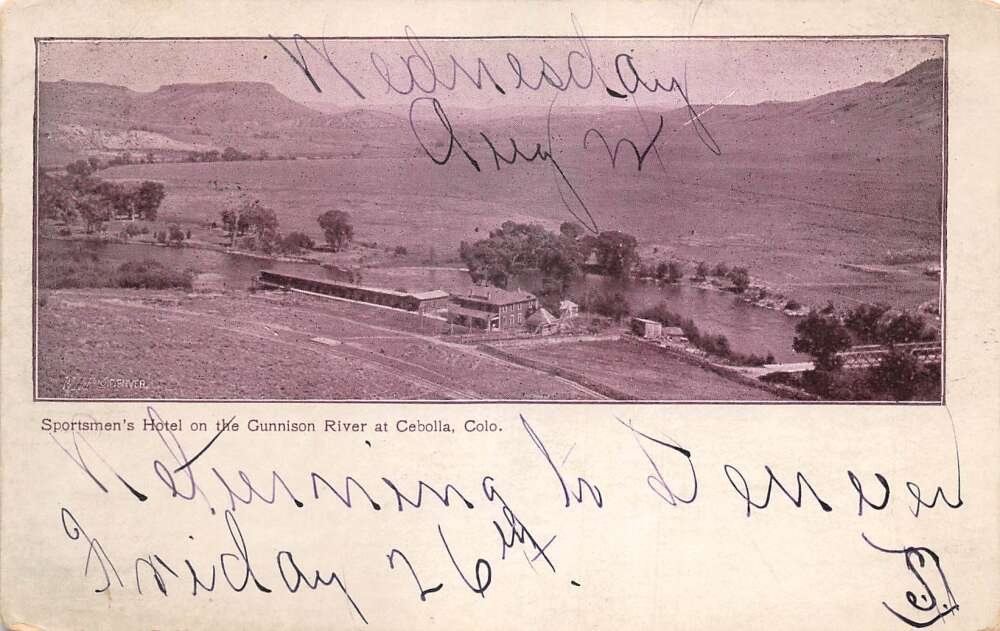 Wednesday
Aug 24
DENVER
Sportsmen's Hotel on the Gunnison River at Cebolla, Colo.
Returning to Denver
Friday 26th.